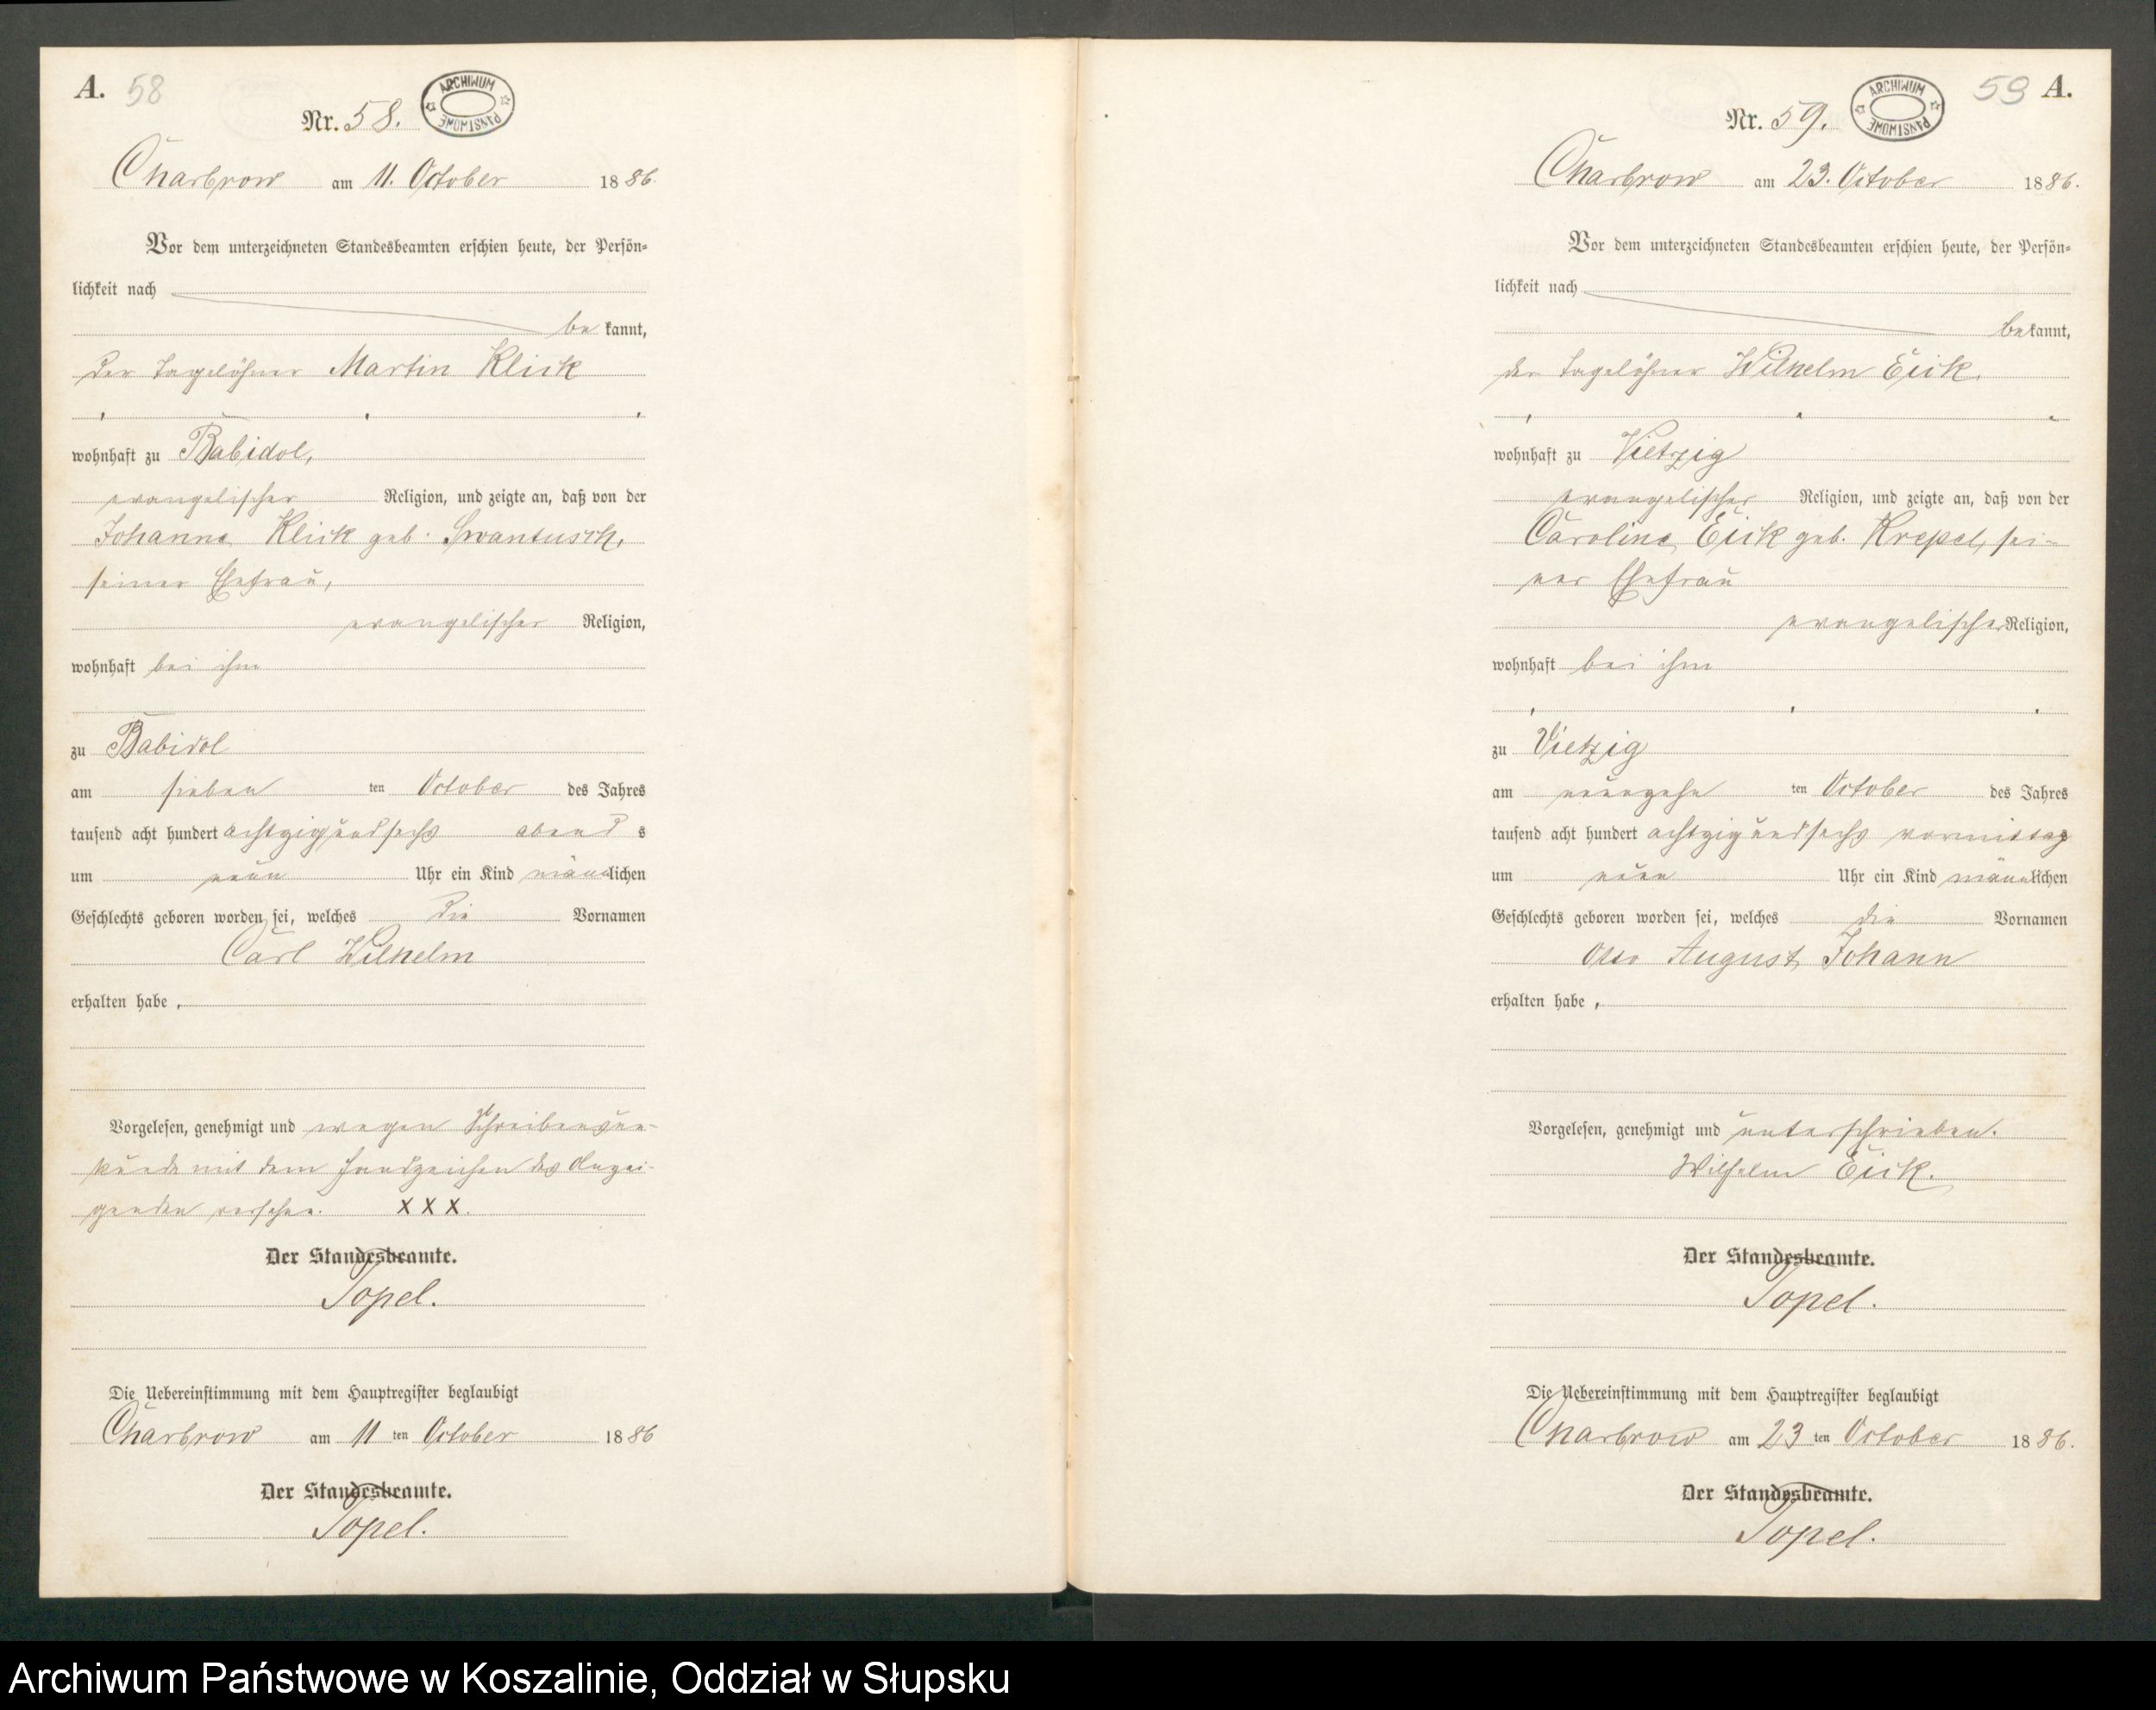 A. 58
Nr. 58.
ARCHIWUM PAŃSTWOWE
Charbrow am 11. October 1886.
Vor dem unterzeichneten Standesbeamten erschien heute, der Persön-
lichkeit nach
be kannt,
der Tagelöhner Martin Klick
wohnhaft zu Babidol,
evangelischer Religion, und zeigte an, daß von der
Johanne Klick geb. Swantusch,
seiner Ehefrau,
evangelischer Religion,
wohnhaft bei ihm
zu Babidol
am sieben ten October des Jahres
tausend acht hundert achtzigundsechs abend s
um neun Uhr ein Kind männlichen
Geschlechts geboren worden sei, welches die Vornamen
Carl Wilhelm
erhalten habe,
Vorgelesen, genehmigt und wegen Schreibensun-
kunde mit dem Handzeichen des Anzei-
genden versehen. XXX.
Der Standesbeamte.
Topel.
Die Uebereinstimmung mit dem Hauptregister beglaubigt
Charbrow am 11 ten October 1886
Der Standesbeamte.
Topel.
59 A.
Nr. 59.
ARCHIWUM PAŃSTWOWE
Charbrow am 23. October 1886.
Vor dem unterzeichneten Standesbeamten erschien heute, der Persön-
lichkeit nach
bekannt,
der Tagelöhner Wilhelm Eick.
wohnhaft zu Vietzig
evangelischer Religion, und zeigte an, daß von der
Caroline Eick geb. Krepel, sei-
ner Ehefrau
evangelischer Religion,
wohnhaft bei ihm
zu Vietzig
am neunzehn ten October des Jahres
tausend acht hundert achtzigundsechs vormittags
um neun Uhr ein Kind männlichen
Geschlechts geboren worden sei, welches die Vornamen
Otto August Johann
erhalten habe,
Vorgelesen, genehmigt und unterschrieben.
Wilhelm Eick.
Der Standesbeamte.
Topel.
Die Uebereinstimmung mit dem Hauptregister beglaubigt
Charbrow am 23 ten October 1886.
Der Standesbeamte.
Topel.
Archiwum Państwowe w Koszalinie, Oddział w Słupsku